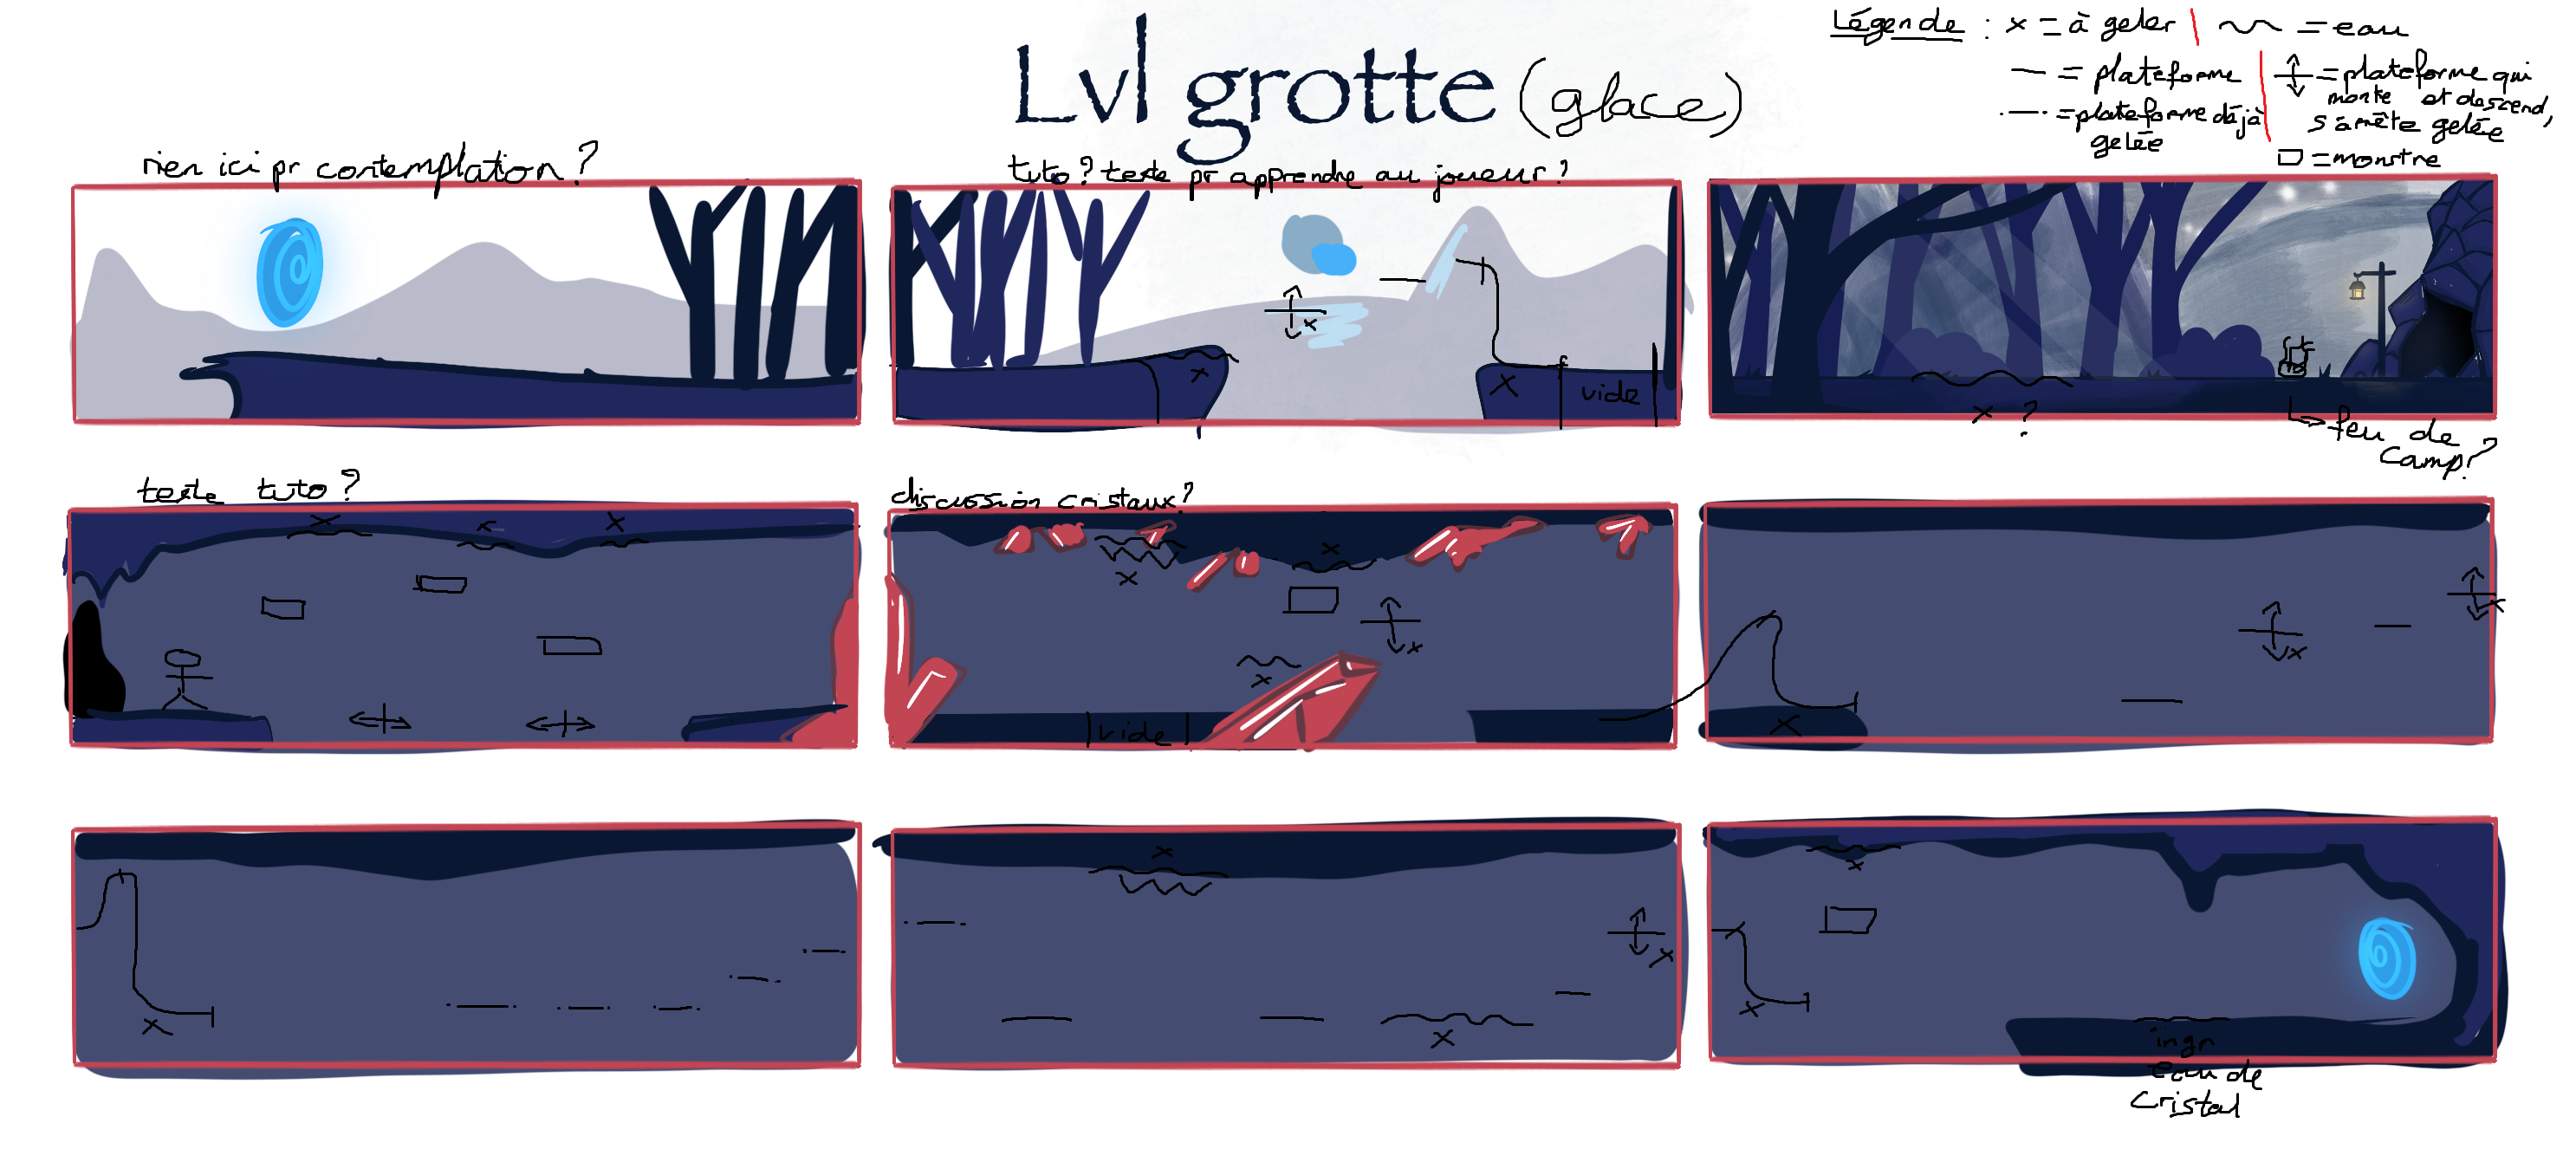 Lvl grotte (glace)
Légende : x = à geler | = eau
— = plateforme | = plateforme qui
monte et descend,
.—. = plateforme déjà
gelée
s'arrête gelée
= monstre
rien ici pr contemplation ?
tuto ? texte pr apprendre au joueur ?
x
x
vide
x ?
feu de
camp ?
texte tuto ?
x x x
discussion cristaux ?
x
x
x
x
vide
x
x
x
x
x
x
x
x
x
ingr
eau de
cristal